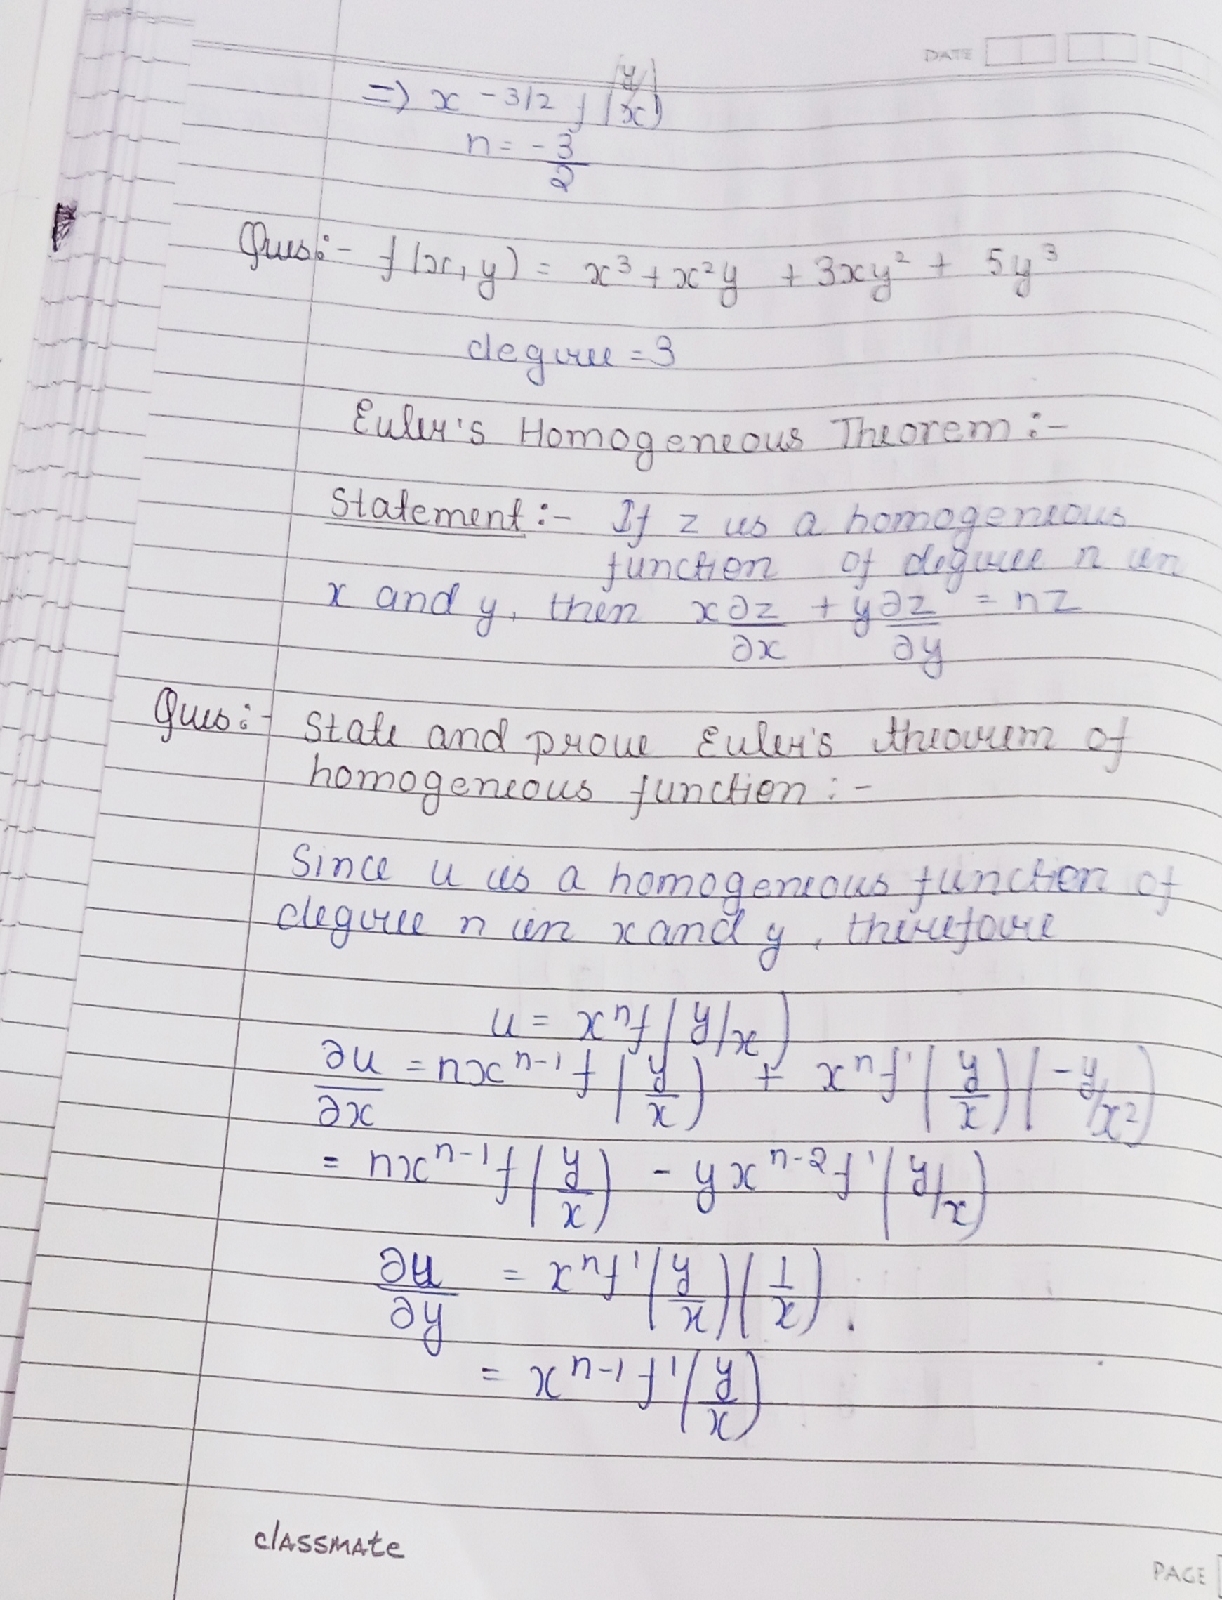 DATE
=) x -3/2 f (y/x)
n = -3/2
Ques:- f(x, y) = x³ + x²y + 3xy² + 5y³
degree = 3
Euler's Homogeneous Theorem :-
Statement :- If z is a homogeneous
function of degree n in
x and y, then x ∂z/∂x + y ∂z/∂y = nz
Ques:- State and prove Euler's theorem of
homogeneous function :-
Since u is a homogeneous function of
degree n in x and y, therefore
u = xⁿf(y/x)
∂u/∂x = nxⁿ⁻¹f(y/x) + xⁿf'(y/x)(-y/x²)
= nxⁿ⁻¹f(y/x) - yxⁿ⁻²f'(y/x)
∂u/∂y = xⁿf'(y/x)(1/x).
= xⁿ⁻¹f'(y/x)
classmate
PAGE